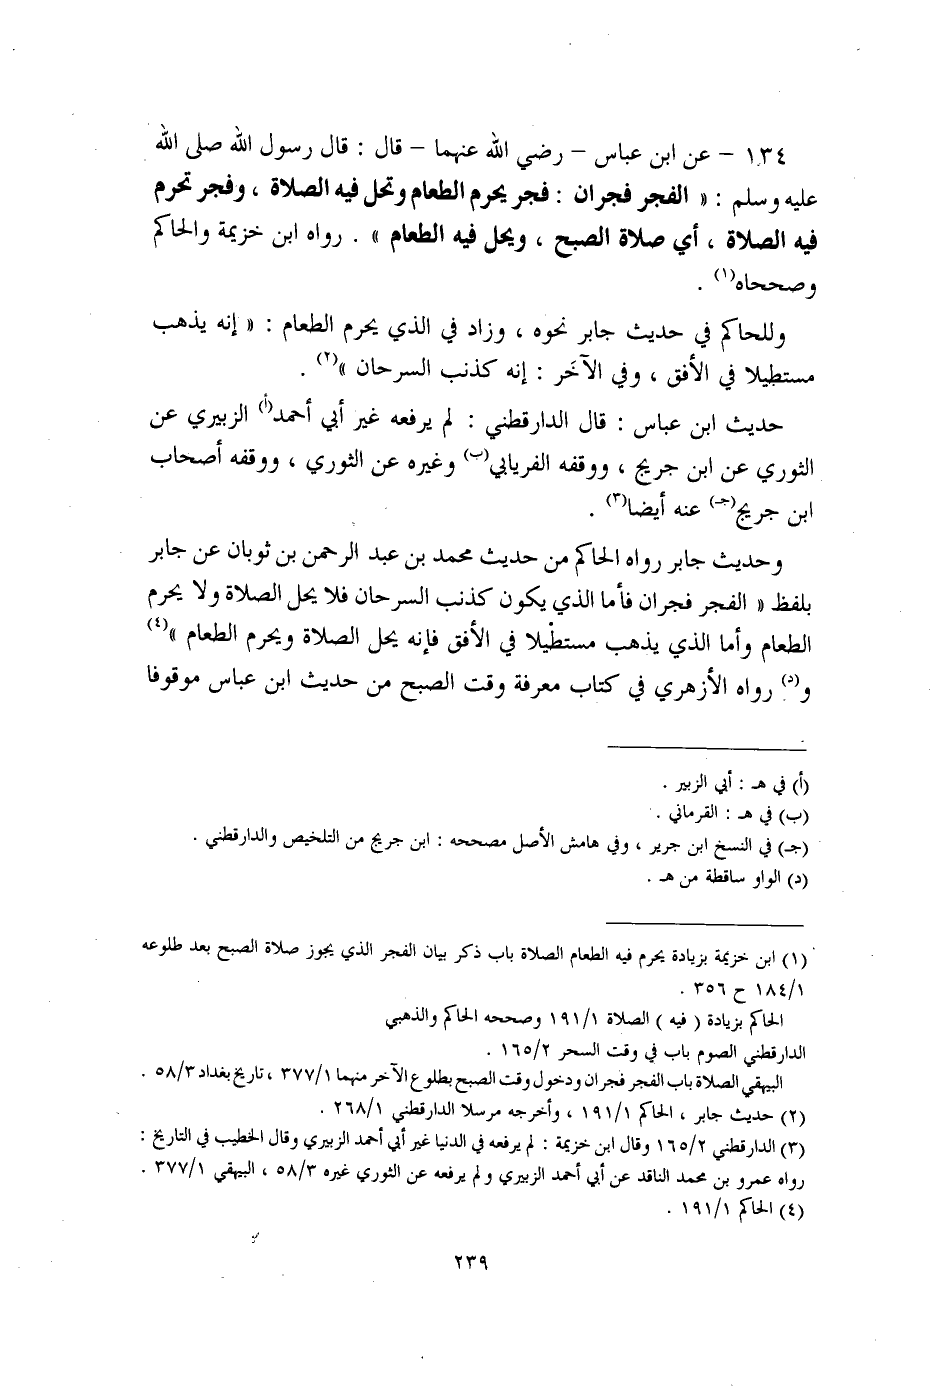 ١٣٤ – عن ابن عباس – رضي الله عنهما – قال : قال رسول الله صلى الله
عليه وسلم : « الفجر فجران : فجر يحرم الطعام وتحل فيه الصلاة ، وفجر تحرم
فيه الصلاة ، أي صلاة الصبح ، ويحل فيه الطعام » . رواه ابن خزيمة والحاكم
وصححاه(١) .
وللحاكم في حديث جابر نحوه ، وزاد في الذي يحرم الطعام : « إنه يذهب
مستطيلا في الأفق ، وفي الآخَر : إنه كذنب السرحان »(٢) .
حديث ابن عباس : قال الدارقطني : لم يرفعه غير أبي أحمد(أ) الزبيري عن
الثوري عن ابن جريج ، ووقفه الفريابي(ب) وغيره عن الثوري ، ووقفه أصحاب
ابن جريج(جـ) عنه أيضا(٣) .
وحديث جابر رواه الحاكم من حديث محمد بن عبد الرحمن بن ثوبان عن جابر
بلفظ « الفجر فجران فأما الذي يكون كذنب السرحان فلا يحل الصلاة ولا يحرم
الطعام وأما الذي يذهب مستطيلا في الأفق فإنه يحل الصلاة ويحرم الطعام »(٤)
و(د) رواه الأزهري في كتاب معرفة وقت الصبح من حديث ابن عباس موقوفا
(أ) في هـ : أبي الزبير .
(ب) في هـ : القرماني .
(جـ) في النسخ ابن جرير ، وفي هامش الأصل مصححه : ابن جريج من التلخيص والدارقطني .
(د) الواو ساقطة من هـ .
(١) ابن خزيمة بزيادة يحرم فيه الطعام الصلاة باب ذكر بيان الفجر الذي يجوز صلاة الصبح بعد طلوعه
١٨٤/١ ح ٣٥٦ .
الحاكم بزيادة ( فيه ) الصلاة ١٩١/١ وصححه الحاكم والذهبي
الدارقطني الصوم باب في وقت السحر ١٦٥/٢ .
البيهقي الصلاة باب الفجر فجران ودخول وقت الصبح بطلوع الآخر منهما ٣٧٧/١ ، تاريخ بغداد ٥٨/٣ .
(٢) حديث جابر ، الحاكم ١٩١/١ ، وأخرجه مرسلا الدارقطني ٢٦٨/١ .
(٣) الدارقطني ١٦٥/٢ وقال ابن خزيمة : لم يرفعه في الدنيا غير أبي أحمد الزبيري وقال الخطيب في التاريخ :
رواه عمرو بن محمد الناقد عن أبي أحمد الزبيري ولم يرفعه عن الثوري غيره ٥٨/٣ ، البيهقي ٣٧٧/١ .
(٤) الحاكم ١٩١/١ .
٢٣٩